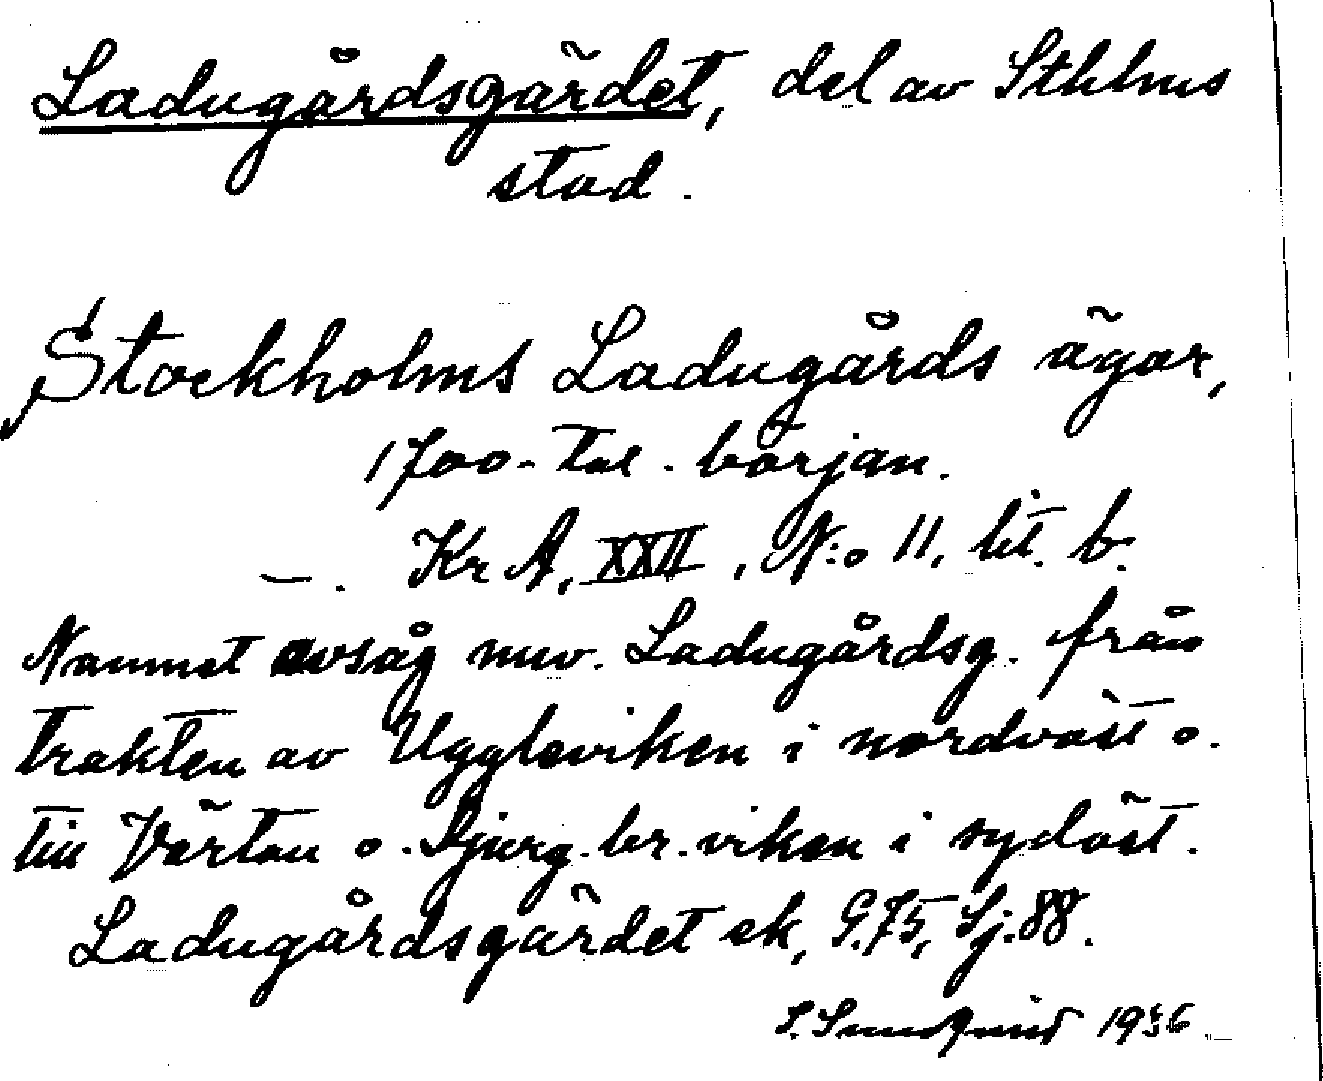 Ladugårdsgärdet, del av Sthlms
stad.
Stockholms Ladugårds ägor,
1700-tal. början.
—. Kr A, XXII, N:o 11, lit. b.
Namnet avsåg nuv. Ladugårdsg. från
trakten av Uggleviken i nordväst o.
till Värtan o. Djurg.br.viken i sydöst.
Ladugårdsgärdet ek, G.75, Sj.88.
S. Sundqvist